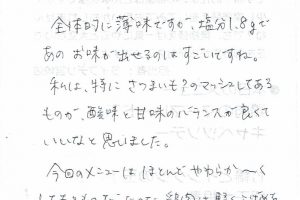 全体的に薄味ですが、塩分1.8gで
あのお味が出せるのはすごいですね。
私は、特にさつまいも?のマッシュしてある
ものが、酸味と甘味のバランスが良くて
いいなと思いました。
今回のメニューはほとんどやわらか〜く